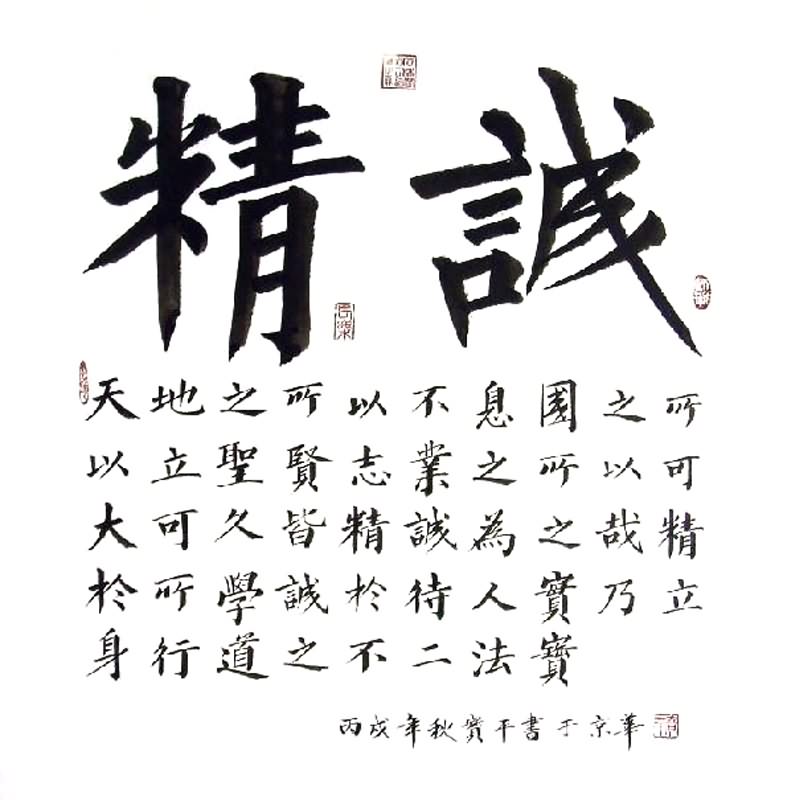 精誠
天地之所以不息國之所
以立聖賢志業之所以可
大可久皆精誠為之哉精
於所學誠於待人實乃立
身行道之不二法實
丙戌年秋實平書于京華